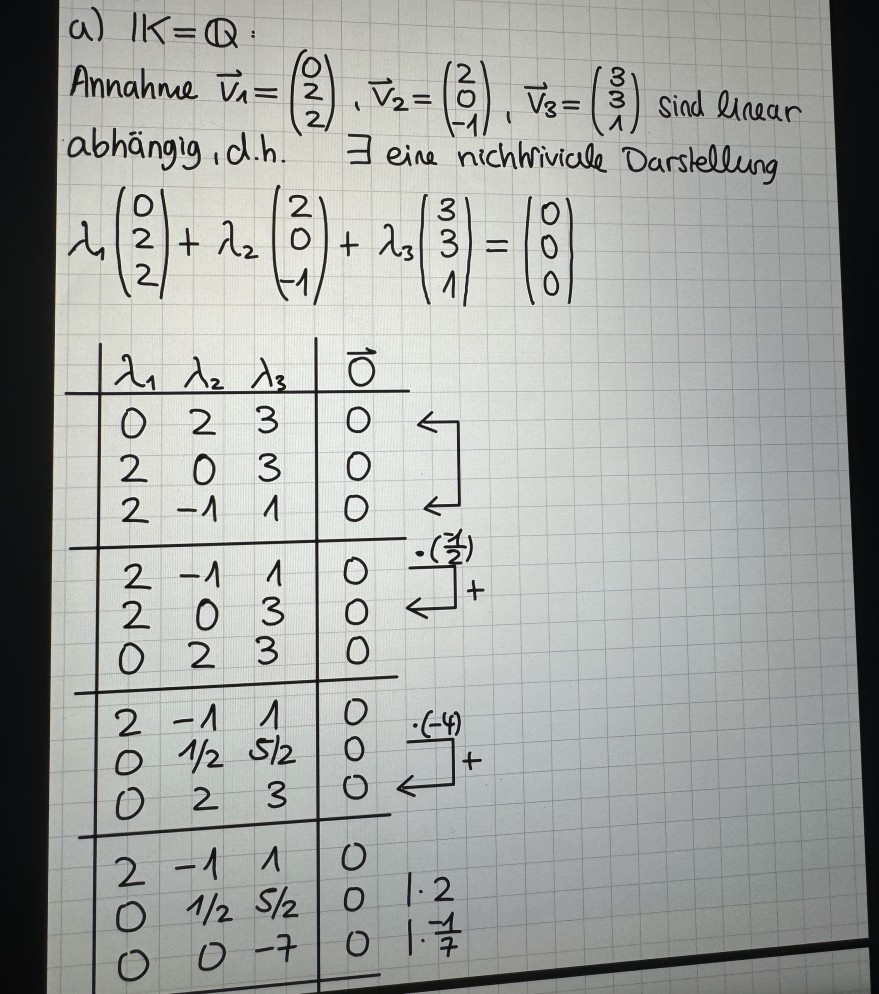 a) K=Q:
Annahme v⃗1 = (0 2 2), v⃗2 = (2 0 -1), v⃗3 = (3 3 1) sind linear
abhängig, d.h. ∃ eine nichttriviale Darstellung
λ1 (0 2 2) + λ2 (2 0 -1) + λ3 (3 3 1) = (0 0 0)
λ1 λ2 λ3 | 0⃗
0 2 3 | 0 ←
2 0 3 | 0
2 -1 1 | 0 ←
2 -1 1 | 0 ·(-1/2)
2 0 3 | 0 ← +
0 2 3 | 0
2 -1 1 | 0
0 1/2 5/2 | 0 ·(-4)
0 2 3 | 0 ← +
2 -1 1 | 0
0 1/2 5/2 | 0 |·2
0 0 -7 | 0 |·-1/7